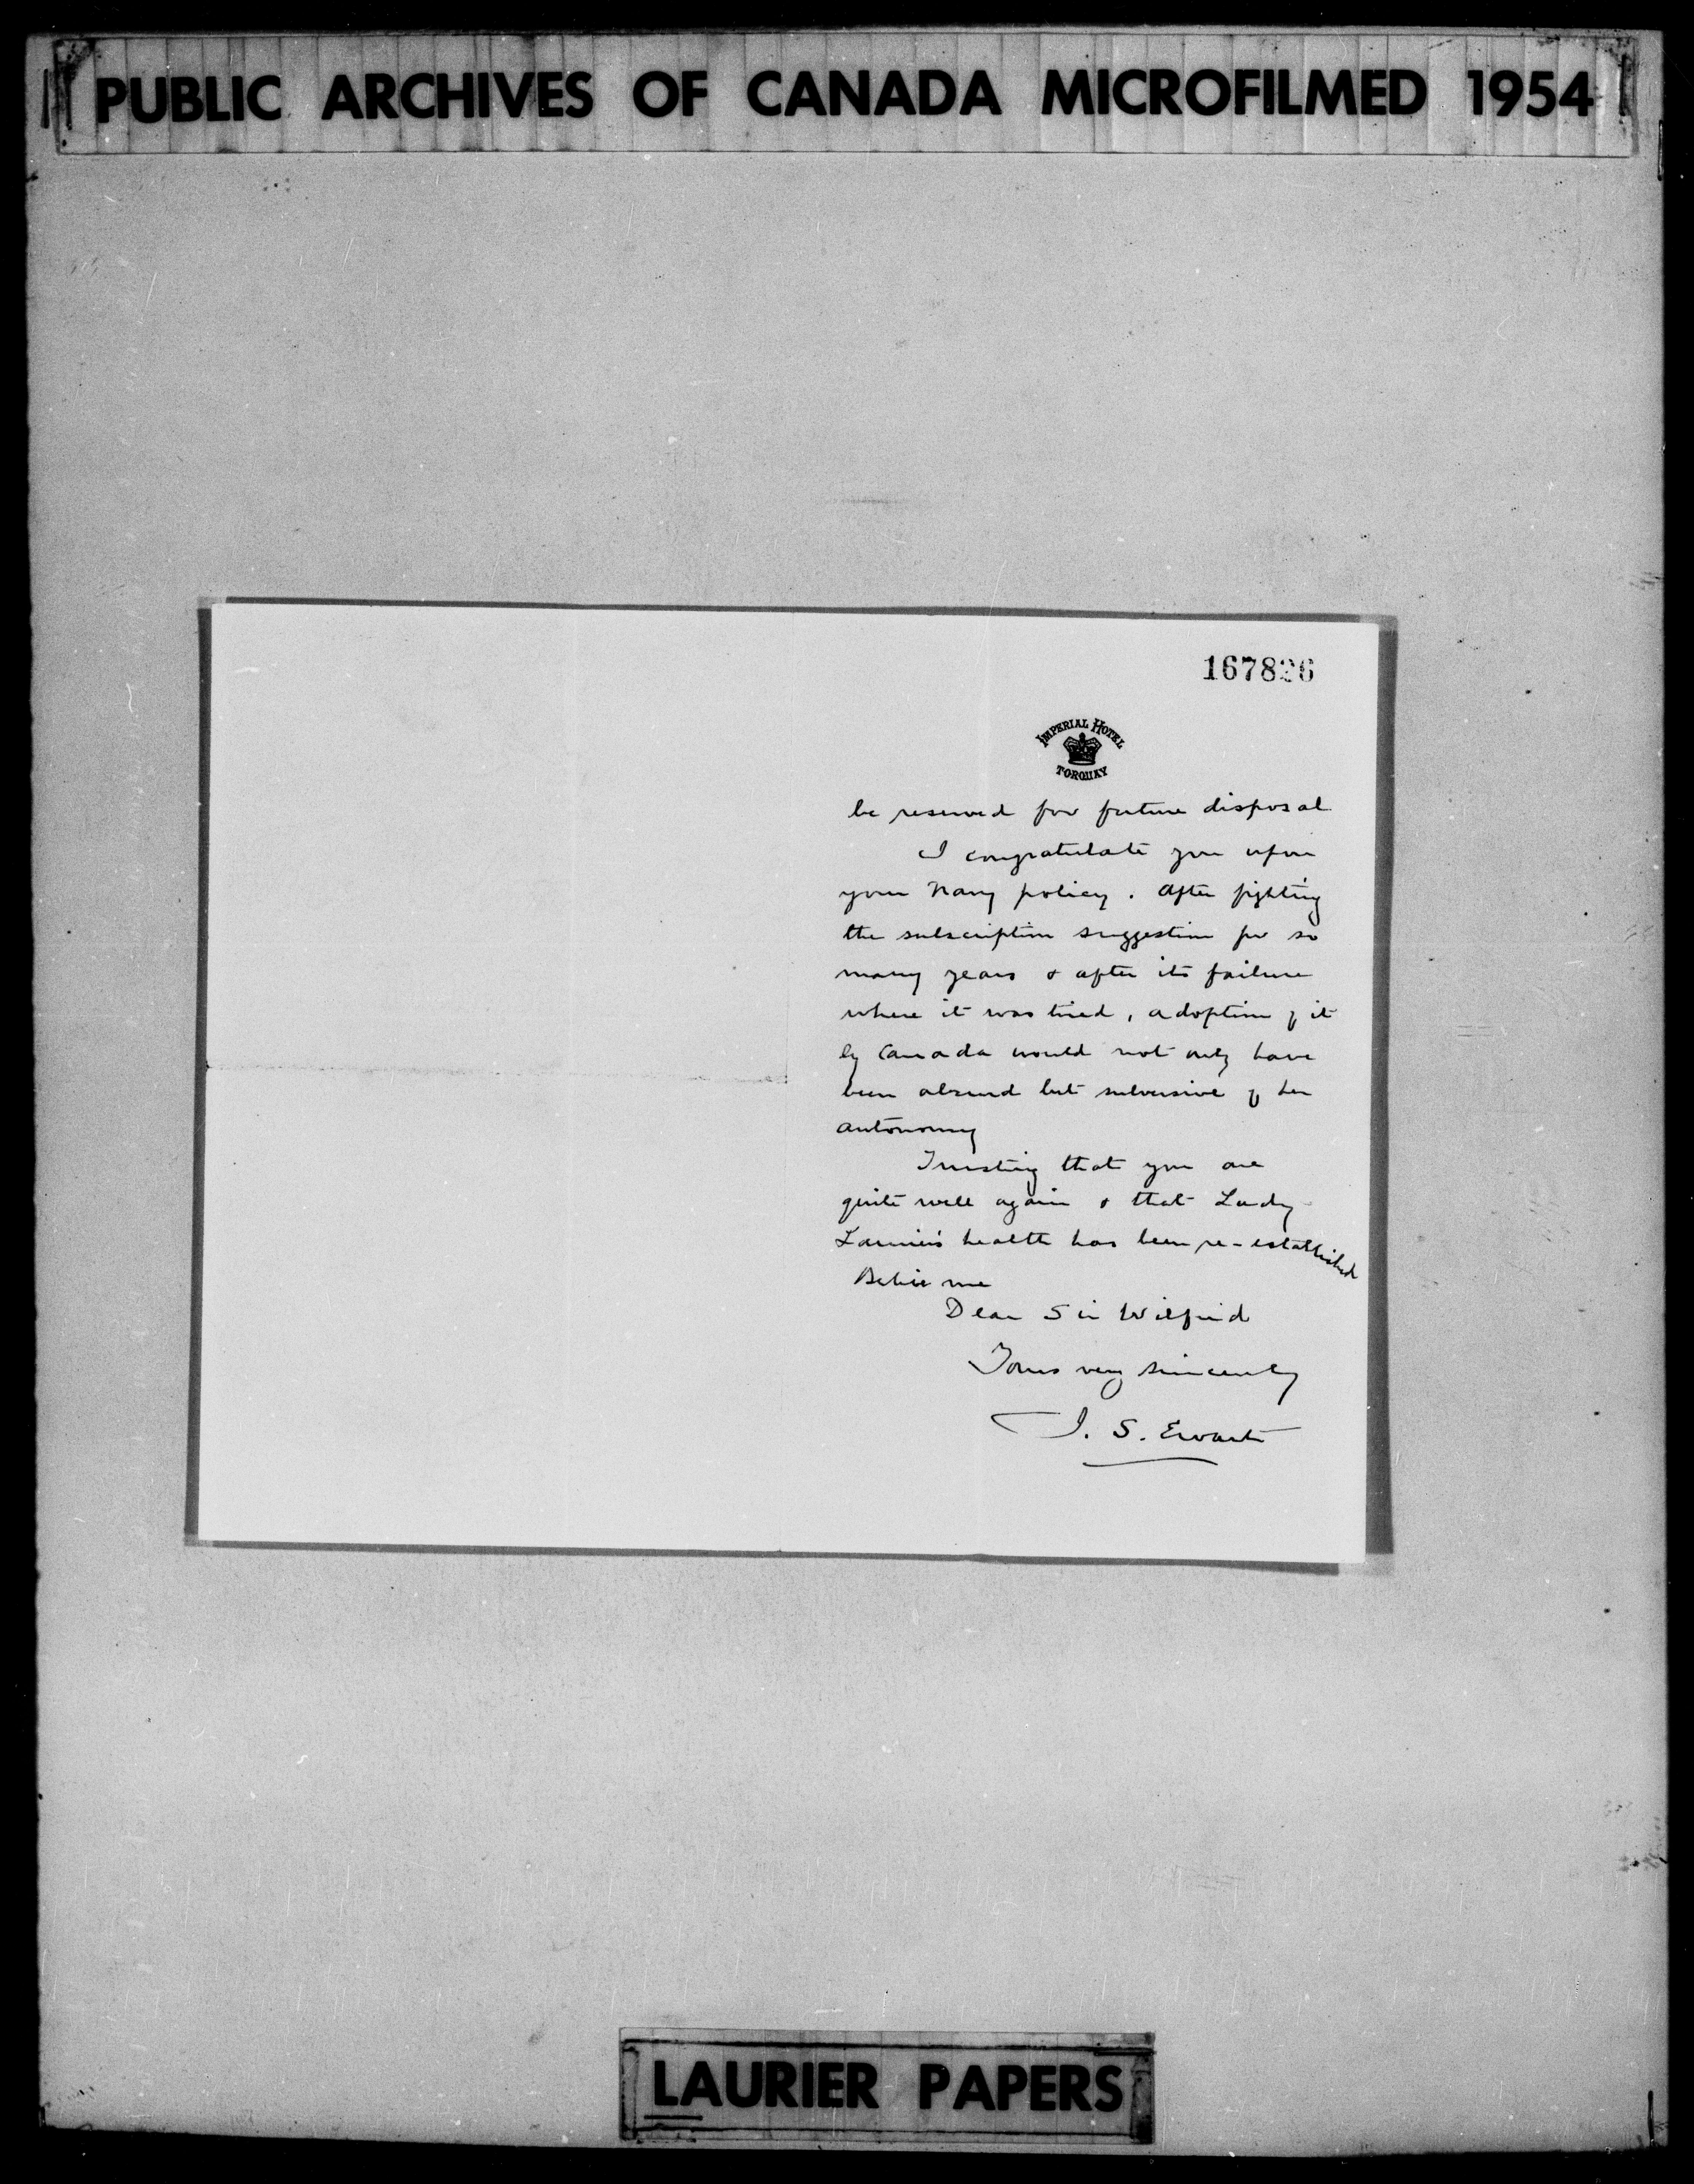 PUBLIC ARCHIVES OF CANADA MICROFILMED 1954
167826
IMPERIAL HOTEL
TORQUAY
be reserved for future disposal
I congratulate you upon
your Navy policy. After fighting
the subscription suggestion for so
many years & after its failure
where it was tried, adoption of it
by Canada would not only have
been absurd but subversive of her
autonomy
Trusting that you are
quite well again & that Lady
Laurier's health has been re-established
Believe me
Dear Sir Wilfrid
Yours very sincerely
J. S. Ewart
LAURIER PAPERS